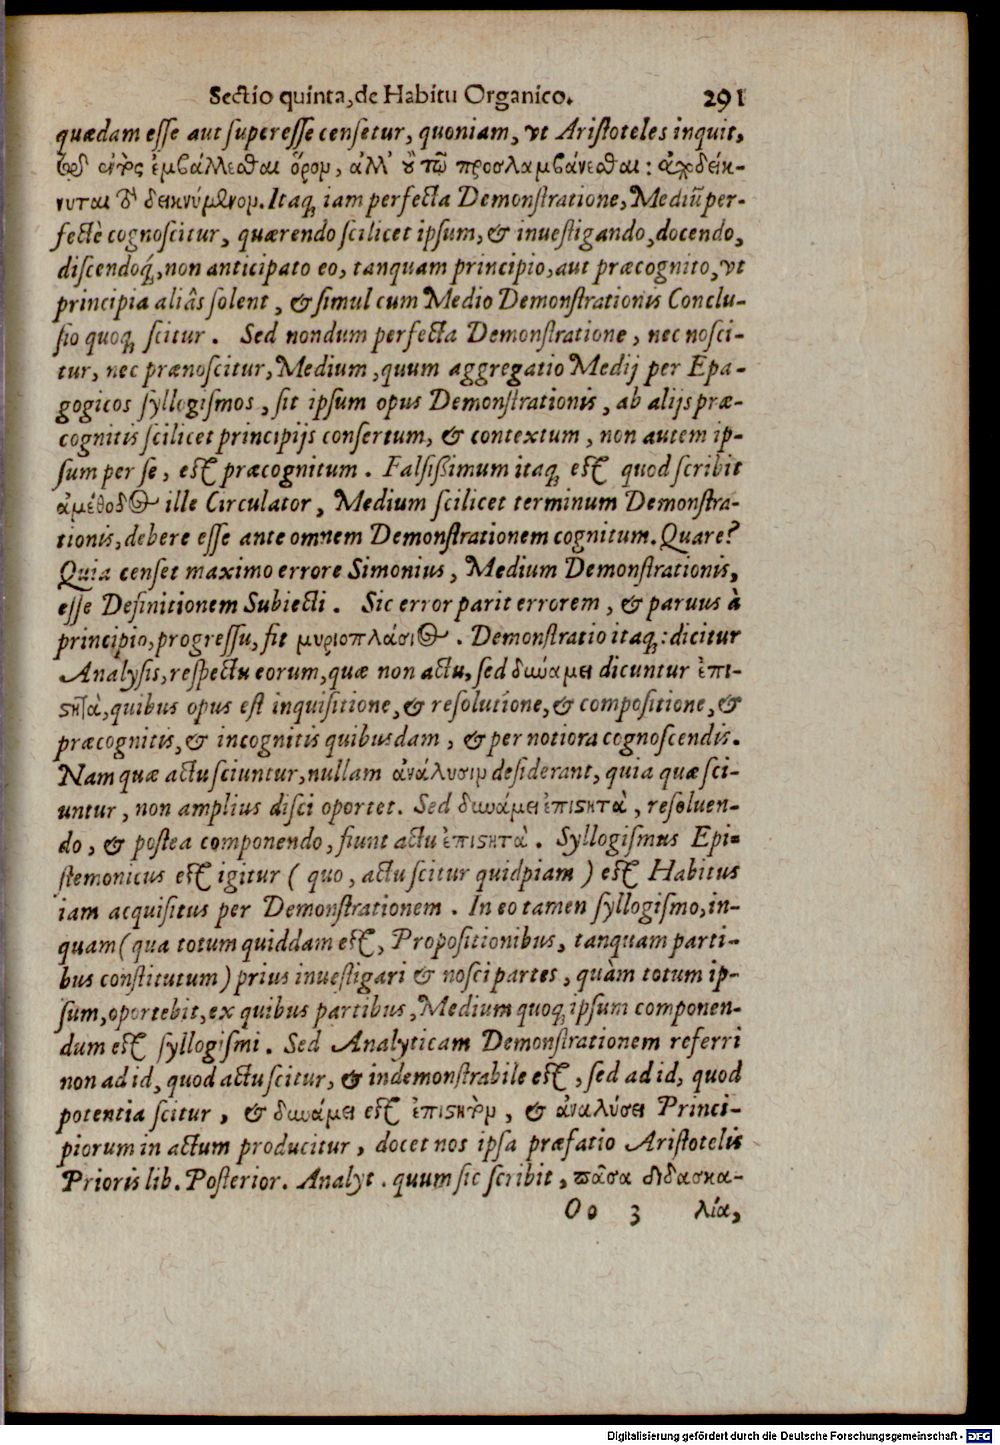 Sectio quinta, de Habitu Organico. 291
quædam esse aut superesse censetur, quoniam, vt Aristoteles inquit,
ἐμβάλλεσθαι ὅρον, ἀλλ' οὐ τῷ προσλαμβάνεσθαι: ἀποδείκ-
νυται τὸ δεικνύμενον. Itaq; iam perfecta Demonstratione, Mediũ per-
fectè cognoscitur, quærendo scilicet ipsum, & inuestigando, docendo,
discendoq́;, non anticipato eo, tanquam principio, aut præcognito, vt
principia aliâs solent, & simul cum Medio Demonstrationis Conclu-
sio quoq; scitur. Sed nondum perfecta Demonstratione, nec nosci-
tur, nec prænoscitur, Medium, quum aggregatio Medij per Epa-
gogicos syllogismos, sit ipsum opus Demonstrationis, ab alijs præ-
cognitis scilicet principijs consertum, & contextum, non autem ip-
sum per se, est præcognitum. Falsißimum itaq; est quod scribit
ἀμέθοδος ille Circulator, Medium scilicet terminum Demonstra-
tionis, debere esse ante omnem Demonstrationem cognitum. Quare?
Quia censet maximo errore Simonius, Medium Demonstrationis,
esse Definitionem Subiecti. Sic error parit errorem, & paruus à
principio, progressu, fit μυριοπλάσιος. Demonstratio itaq;: dicitur
Analysis, respectu eorum, quæ non actu, sed δυνάμει dicuntur ἐπι-
στητὰ, quibus opus est inquisitione, & resolutione, & compositione, &
præcognitis, & incognitis quibusdam, & per notiora cognoscendis.
Nam quæ actu sciuntur, nullam ἀνάλυσιν desiderant, quia quæ sci-
untur, non amplius disci oportet. Sed δυνάμει ἐπιστητὰ, resoluen-
do, & postea componendo, fiunt actu ἐπιστητὰ. Syllogismus Epi-
stemonicus est igitur ( quo, actu scitur quidpiam ) est Habitus
iam acquisitus per Demonstrationem. In eo tamen syllogismo, in-
quam (qua totum quiddam est, Propositionibus, tanquam parti-
bus constitutum) prius inuestigari & nosci partes, quàm totum ip-
sum, oportebit, ex quibus partibus, Medium quoq; ipsum componen-
dum est syllogismi. Sed Analyticam Demonstrationem referri
non ad id, quod actu scitur, & indemonstrabile est, sed ad id, quod
potentia scitur, & δυνάμει est ἐπιστητὸν, & ἀναλύσει Princi-
piorum in actum producitur, docet nos ipsa præfatio Aristotelis
Prioris lib. Posterior. Analyt. quum sic scribit, πᾶσα διδασκα-
Oo 3 λία,
Digitalisierung gefördert durch die Deutsche Forschungsgemeinschaft - DFG